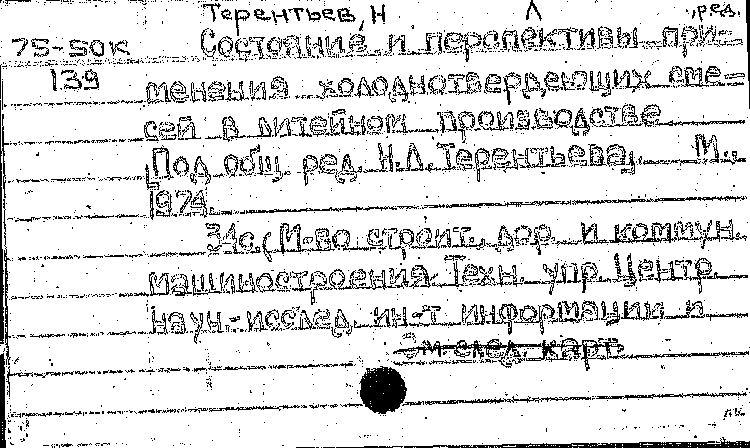 Терентьев, Н Л , ред.
75-50к Состояние и перспективы при-
139 менения холоднотвердеющих сме=
сей в литейном производстве
[Под общ. ред. Н.Л. Терентьева]. М.,
1974.
34с. (М-во строит., дор. и коммун.
машиностроения. Техн. упр. Центр.
науч.-исслед. ин-т информации и
См. след. карт.